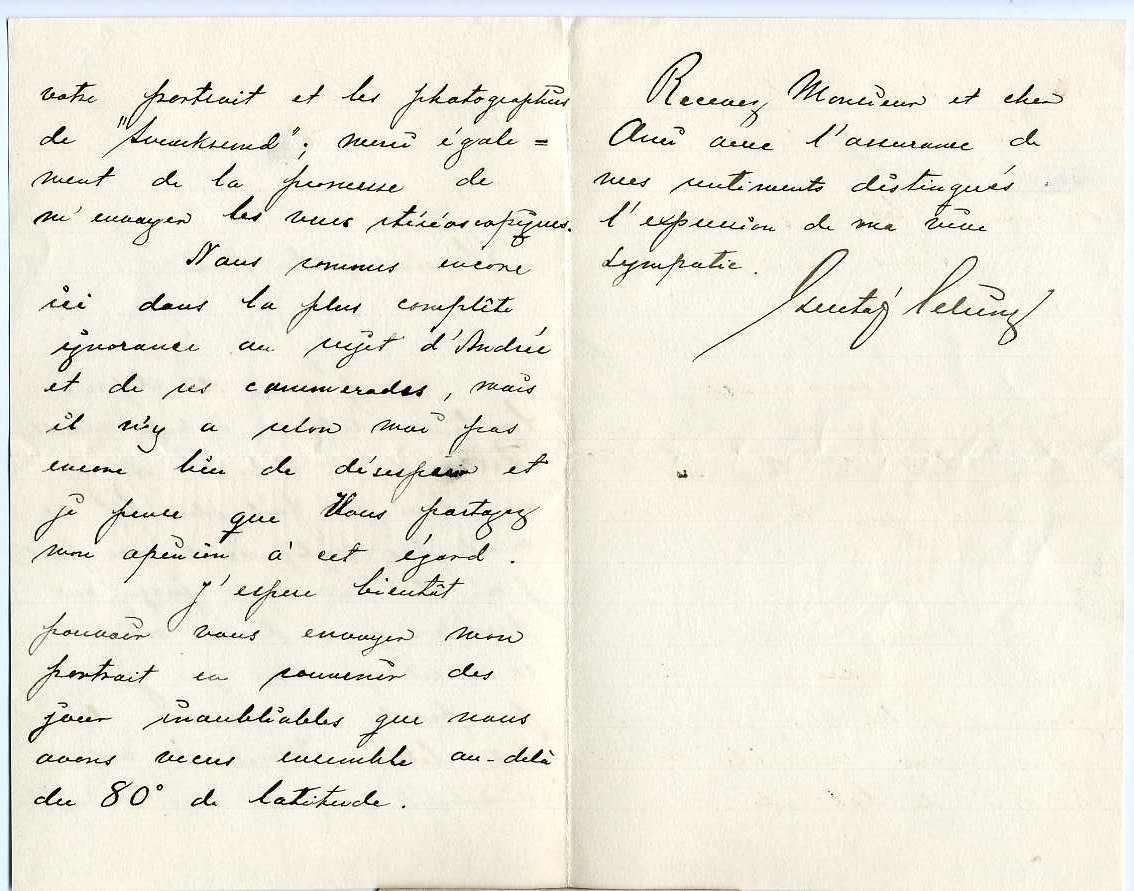 votre portrait et les photographies
de "Svensksund"; merci égale=
ment de la promesse de
m'envoyer les vues stéréoscopiques.
Nous sommes encore
ici dans la plus complête
ignorance au sujet d'Andrée
et de ses cammerades, mais
il n'y a selon moi pas
encore lieu de désespérer et
je pense que Vous partagez
mon opinion à cet égard.
J'espere bientôt
pouvoir vous envoyer mon
portrait en souvenir des
jour inoubliables que nous
avons vecus ensemble au-delà
du 80° de latitude.
Recevez Monsieur et cher
Ami avec l'assurance de
mes sentiments distingués
l'expression de ma vive
sympatie.
Gustaf